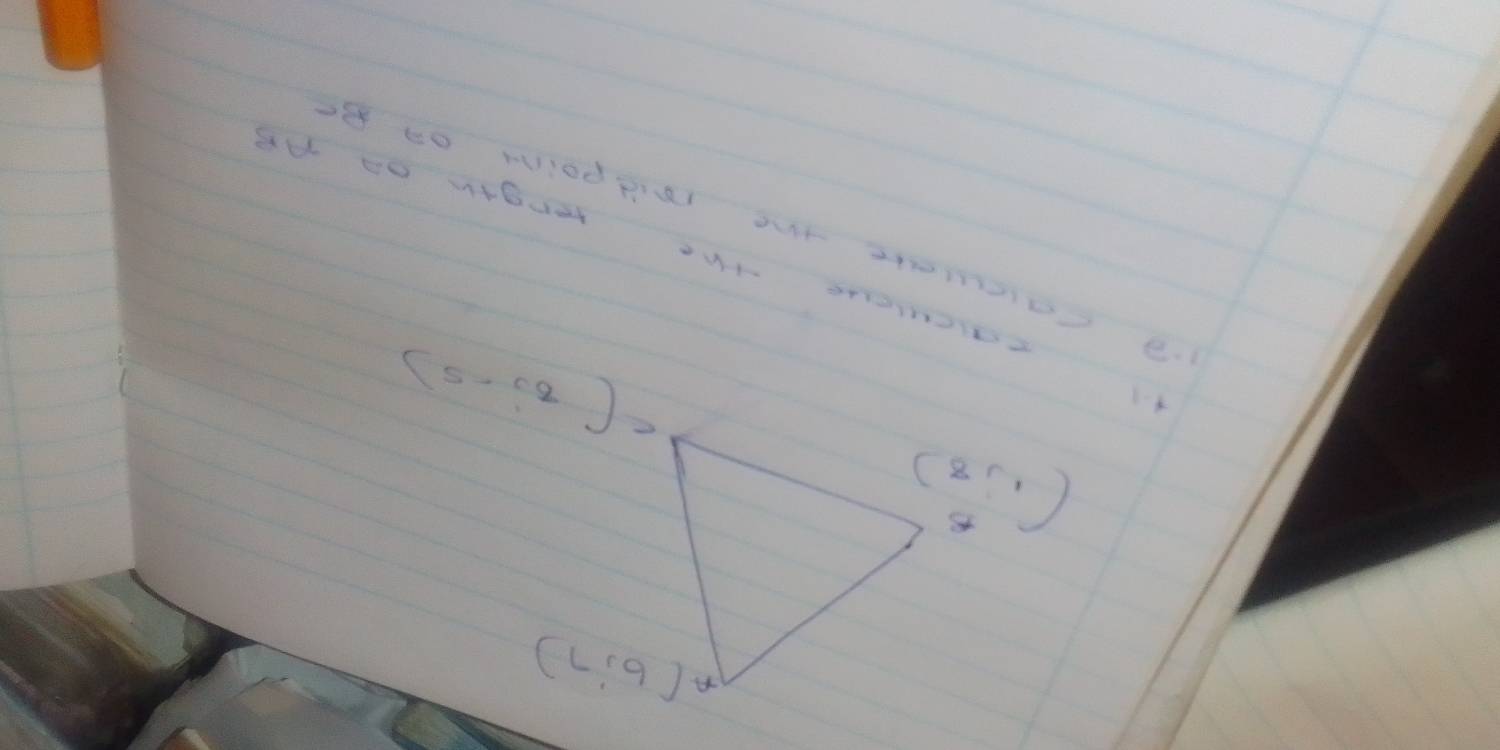 A (9;7)
B
(1;8)
C (8;-5)
1.1 calculate the length of AB
1.2 calculate the midpoint of BC